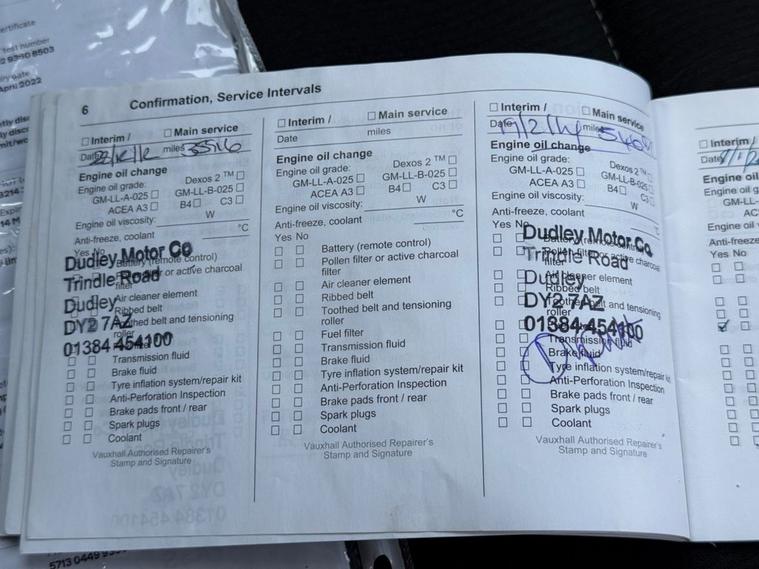 ertificate
test number
9380 8503
iry date
April 2022
6 Confirmation, Service Intervals
☐ Interim / ☐ Main service
Date miles 35516
Engine oil change
Engine oil grade: Dexos 2 ™ ☐
GM-LL-A-025 ☐ GM-LL-B-025 ☐
ACEA A3 ☐ B4 ☐ C3 ☐
Engine oil viscosity: W
Anti-freeze, coolant °C
Yes No
Dudley Motor Co
Trindle Road
Dudley
DY2 7AZ
01384 454100
Battery (remote control)
or active charcoal
filter
Air cleaner element
Ribbed belt
Toothed belt and tensioning
roller
☐ ☐ Transmission fluid
☐ ☐ Brake fluid
☐ ☐ Tyre inflation system/repair kit
☐ ☐ Anti-Perforation Inspection
☐ ☐ Brake pads front / rear
☐ ☐ Spark plugs
☐ ☐ Coolant
Vauxhall Authorised Repairer's
Stamp and Signature
☐ Interim / ☐ Main service
Date miles
Engine oil change
Engine oil grade: Dexos 2 ™ ☐
GM-LL-A-025 ☐ GM-LL-B-025 ☐
ACEA A3 ☐ B4 ☐ C3 ☐
Engine oil viscosity: W
Anti-freeze, coolant °C
Yes No
☐ ☐ Battery (remote control)
☐ ☐ Pollen filter or active charcoal
filter
☐ ☐ Air cleaner element
☐ ☐ Ribbed belt
☐ ☐ Toothed belt and tensioning
roller
☐ ☐ Fuel filter
☐ ☐ Transmission fluid
☐ ☐ Brake fluid
☐ ☐ Tyre inflation system/repair kit
☐ ☐ Anti-Perforation Inspection
☐ ☐ Brake pads front / rear
☐ ☐ Spark plugs
☐ ☐ Coolant
Vauxhall Authorised Repairer's
Stamp and Signature
☐ Interim / ☐ Main service
Date 19/2/14 miles
Engine oil change
Engine oil grade: Dexos 2 ™ ☐
GM-LL-A-025 ☐ GM-LL-B-025 ☐
ACEA A3 ☐ B4 ☐ C3 ☐
Engine oil viscosity: W
Anti-freeze, coolant °C
Yes No
Dudley Motor Co
Trindle Road
Dudley
DY2 7AZ
01384 454100
Air cleaner element
Ribbed belt
Toothed belt and tensioning
roller
Transmission fluid
Brake fluid
Tyre inflation system/repair kit
☐ ☐ Anti-Perforation Inspection
☐ ☐ Brake pads front / rear
☐ ☐ Spark plugs
☐ ☐ Coolant
Vauxhall Authorised Repairer's
Stamp and Signature
☐ Interim /
Date
Engine oil
Engine oil g
GM-LL-
AC
Engine oil
Anti-freeze
Yes No
5713 0449